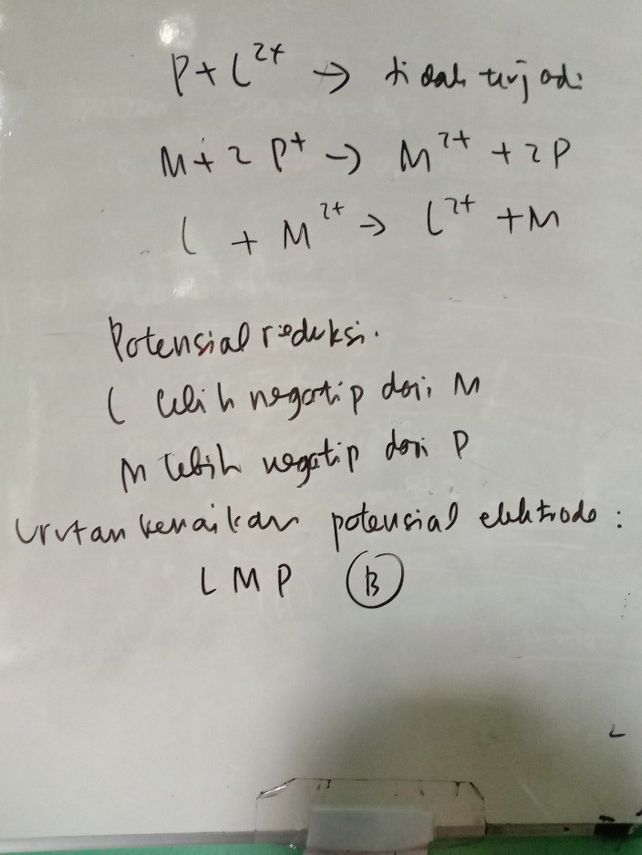 P + L²⁺ → tidak terjadi
M + 2 P⁺ → M²⁺ + 2P
L + M²⁺ → L²⁺ + M
Potensial reduksi.
L lebih negatip dari M
M lebih negatip dari P
Urutan kenaikan potensial elektrode :
L M P (B)